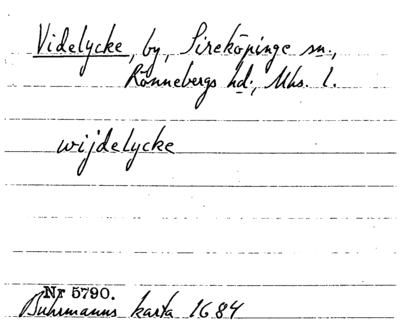 Videlycke, by, Sireköpinge sn.,
Rönnebergs hd., Mhs. l.
wijdelycke
Nr 5790.
Buhrmanns karta 1684